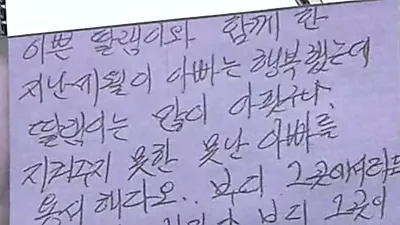 이쁜 딸램이와 함께 한
지난 세월이 아빠는 행복했는데
딸램이는 많이 아팠구나.
지켜주지 못한 못난 아빠를
용서해다오.. 부디 그곳에서라도
부디 그곳이